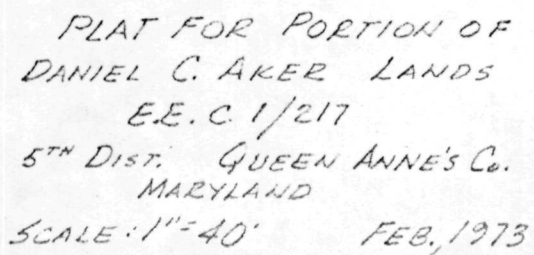 PLAT FOR PORTION OF
DANIEL C. AKER LANDS
E.E.C. 1/217
5TH DIST. QUEEN ANNE'S Co.
MARYLAND
SCALE: 1"=40' FEB., 1973